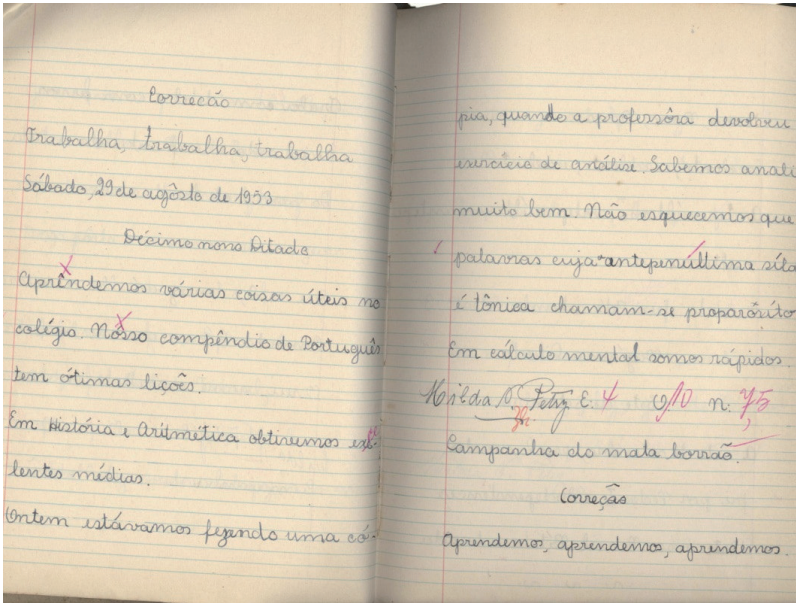 Correcão
Trabalha, trabalha, trabalha
Sábado, 29 de agôsto de 1953
Décimo nono Ditado
Aprêndemos várias coisas úteis no
colégio. Nósso compêndio de Português
tem ótimas lições.
Em História e Aritmética obtivemos
lentes médias.
Ontem estávamos fazendo uma có-
pia, quando a professôra devolveu
exercício de análise. Sabemos anali
muito bem. Não esquecemos que
palavras cuja antepenúltima síla
é tônica chamam-se proparoxíto
Em cálculo mental somos rápidos.
Hilda E. 4 O 10 n. 75
Campanha do mata borrão.
Correção
Aprendemos, aprendemos, aprendemos.